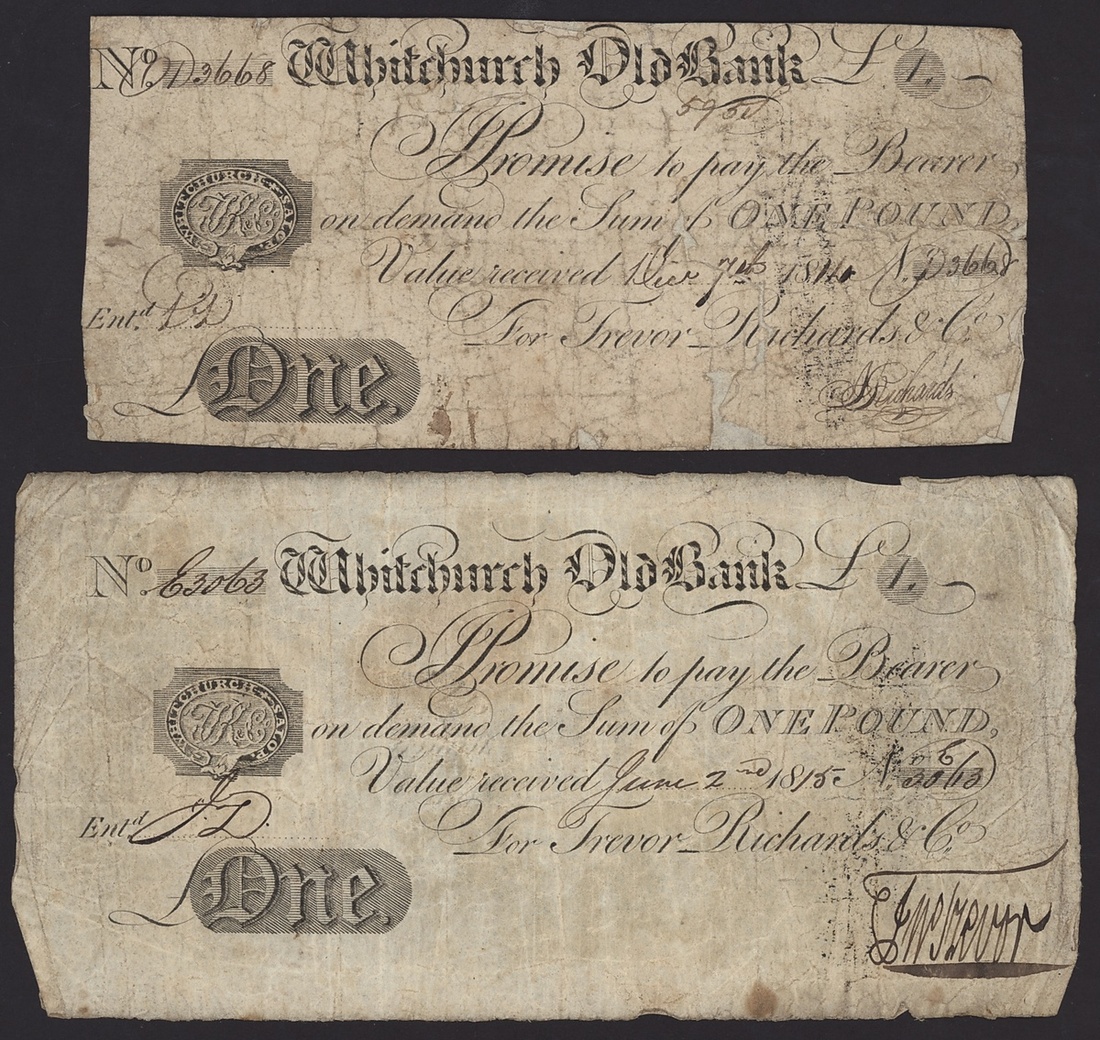 No. D3668 Whitchurch Old Bank £ 1.
I Promise to pay the Bearer
on demand the Sum of ONE POUND,
WHITCHURCH SALOP.
Value received Dec 7th 1814 N. D3668
Entd
For Trevor Richards & Co.
£ One.
Richards
No. E3063 Whitchurch Old Bank £ 1.
I Promise to pay the Bearer
on demand the Sum of ONE POUND,
WHITCHURCH SALOP.
Value received June 2nd 1815 No. E3063
Entd
For Trevor Richards & Co.
£ One.
Trevor